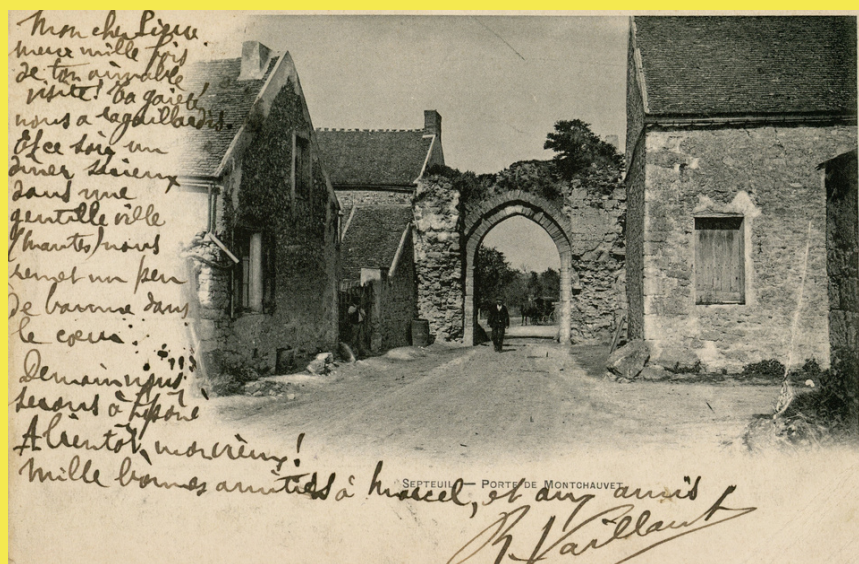 Mon cher Pierre.
merci mille fois
de ton aimable
visite! Ta gaieté
nous a ragaillardis.
Et ce soir un
diner sérieux
dans une
gentille ville
(Mantes) nous
remet un peu
de baume dans
le cœur.
Demain nous
serons à Epône
A bientôt, mon vieux!
Mille bonnes amitiés à Marcel, et aux amis
R. Vaillant
SEPTEUIL — PORTE DE MONTCHAUVET